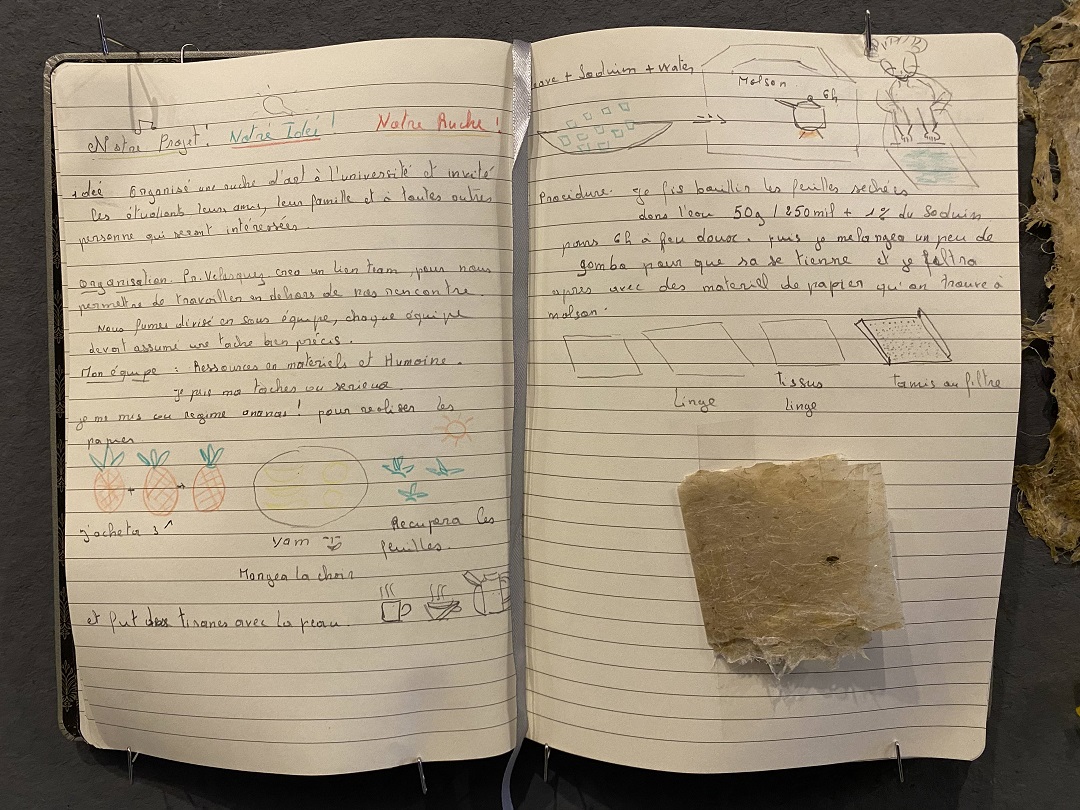 Notre Projet! Notre Ideé! Notre Ruche!
Ideé Organisé une ruche d'art à l'université et invité
les étudiants leurs amis, leur famille et à toutes autres
personne qui seront intéressées.
Organisation. Pr. Velasquez crea un lien team, pour nous
permettre de travailler en dehors de nos rencontre.
Nous fumes divisé en sous équipe, chaque équipe
devait assumé une tache bien précis.
Mon équipe : Ressources en materiels et Humaine.
Je pris ma taches au serieux
je me mis au regime ananas! pour realiser les
papier
J'acheta 3
Yam
Recupera les
feuilles.
Mangea la chair
et fut des tisanes avec la peau.
+ Soduim + water
Molson
6h
Procédure. Je fis bouillir les feuilles sechées
dans l'eau 50g / 250mil + 1% du Soduim
pours 6h à feu doux. puis je melangea un peu de
gombo pour que sa se tienne et je filtra
apres avec des materiel de papier qu'on trouve à
molson.
Linge
tissus
linge
tamis au filtre